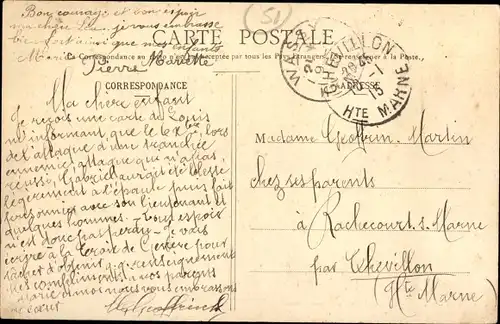 Bon courage et bon espoir
ma chère Léa je vous embrasse
bien fort ainsi que mes enfants
Marie Pierre
(51)
CARTE POSTALE
La Correspondance au recto n'est pas acceptée par tous les Pays Étrangers (Se renseigner à la Poste).
WASSY
CHEVILLON
20 -1
15
HTE MARNE
CORRESPONDANCE
ADRESSE
Ma chère enfant
Je reçois une carte de Louis
m'informant que le 6 Xbre, lors
de l'attaque d'une tranchée
ennemie, attaque qui n'a pas
réussi, Gabriel aurait été blessé
légèrement à l'épaule puis fait
prisonnier avec son lieutenant et
quelques hommes. Tout espoir
n'est donc pas perdu. Je vais
écrire à la Croix de Genève pour
tâcher d'obtenir qq. renseignements
Mes compliments à vos parents
Marie et moi nous vous embrassons
de cœur
Madame Geoffrin-Martin
chez ses parents
à Rachecourt s. Marne
par Chevillon
(Hte Marne)